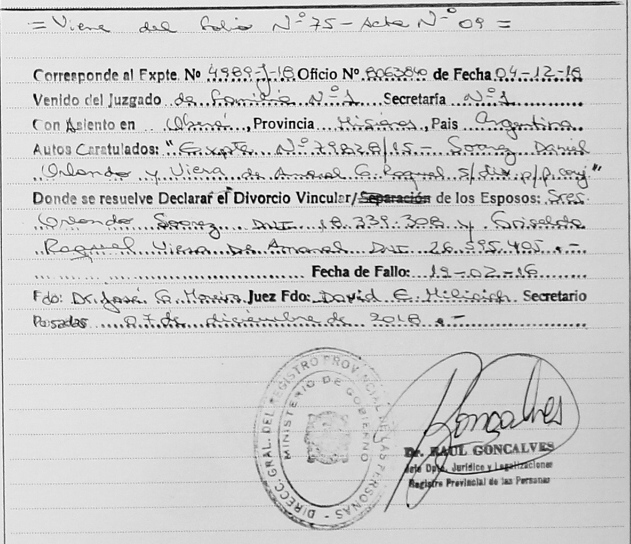 = Viene del Folio Nº 75 - Acta Nº 09 =
Corresponde al Expte. Nº 4989-J-18 Oficio Nº de Fecha 04-12-18
Venido del Juzgado de Familia Nº 1 Secretaría Nº 1
Con Asiento en Oberá, Provincia Misiones, Pais Argentina
Autos Caratulados: "Expte Nº 79828/15 - Suarez Daniel
Orlando y Viera de Amaral G. Raquel s/div. p/p. conj."
Donde se resuelve Declarar el Divorcio Vincular/Separación de los Esposos: Sres.
Orlando Suarez DNI 18.339.308 y Griselda
Raquel Viera De Amaral DNI 26.595.405 .-
Fecha de Fallo: 19-02-18
Fdo: Dr. José G. Juez Fdo: David E. Secretario
Posadas 07 de diciembre de 2018 .-
DIRECC. GRAL. DEL REGISTRO PROVINCIAL DE LAS PERSONAS -
MINISTERIO DE GOBIERNO
Goncalves
Dr. RAUL GONCALVES
Jefe Dpto. Jurídico y Legalizaciones
Registro Provincial de las Personas